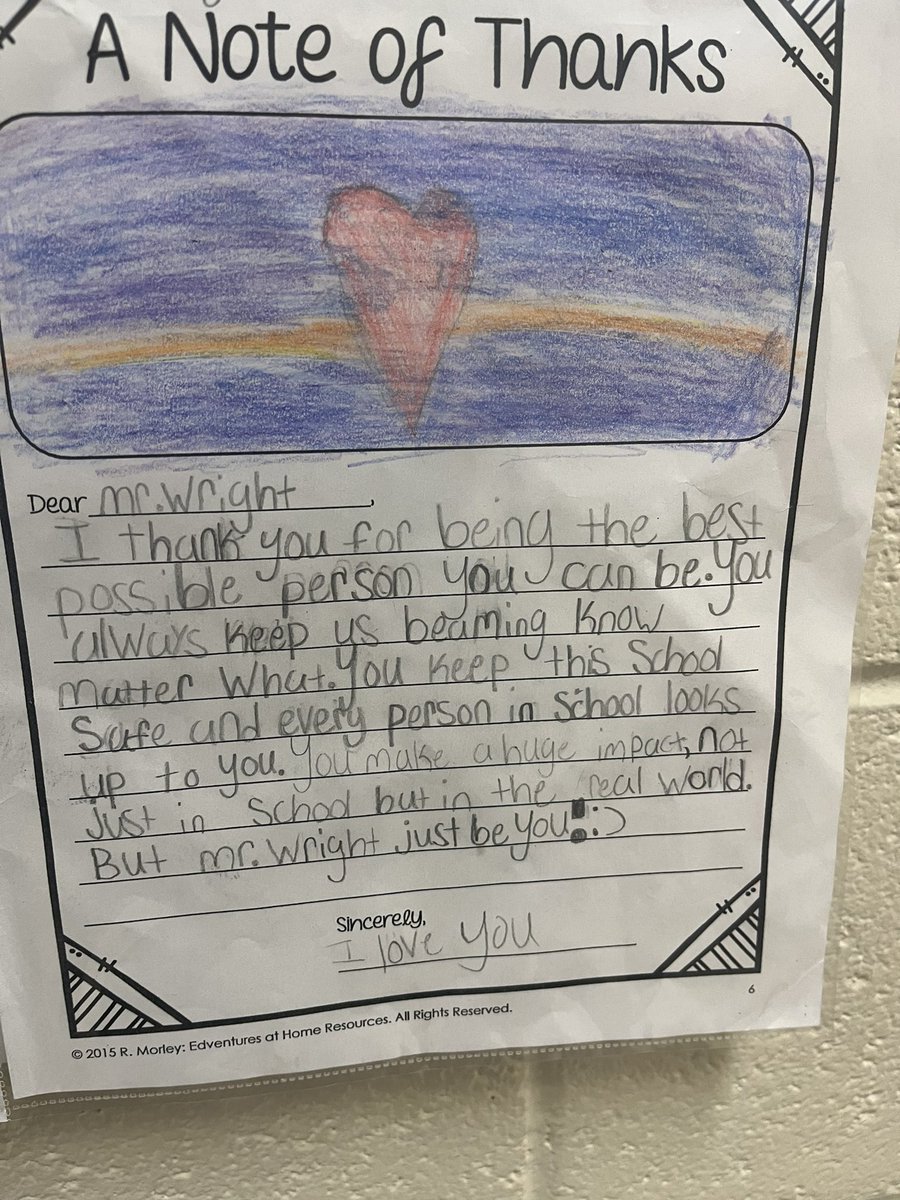 A Note of Thanks
Dear mr. Wright,
I thank you for being the best
possible person you can be. You
always keep us beaming know
matter What. You keep this School
Safe and every person in School looks
up to you. You make a huge impact, not
just in School but in the real world.
But mr. Wright just be you!! :)
Sincerely,
I love you
6
© 2015 R. Morley: Edventures at Home Resources. All Rights Reserved.